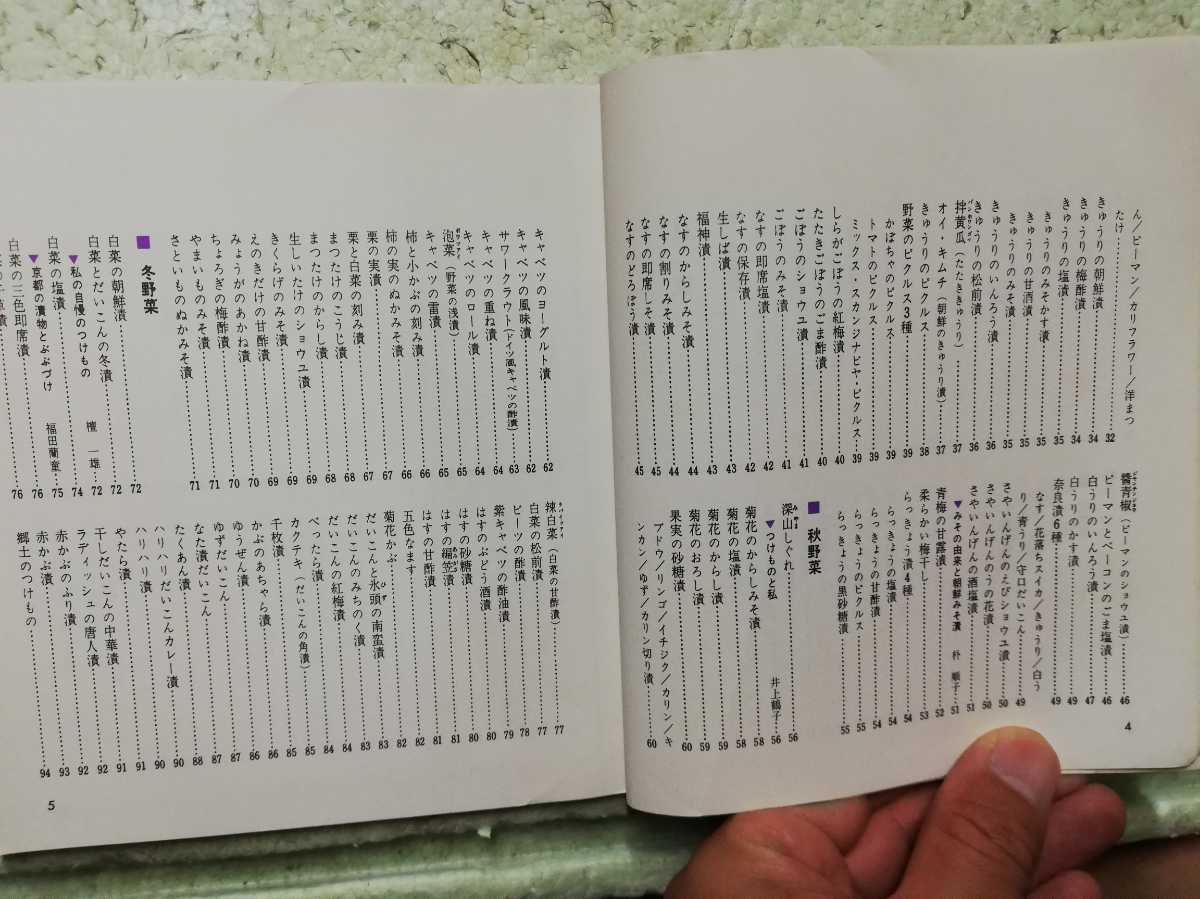 ん／ピーマン／カリフラワー／洋まつ
たけ……32
きゅうりの朝鮮漬……34
きゅうりの梅酢漬……34
きゅうりのみそかす漬……35
きゅうりの塩漬……35
きゅうりの甘酒漬……35
きゅうりのみそ漬……35
きゅうりのいんろう漬……36
きゅうりの松前漬……36
拌黄瓜（たたききゅうり）……37
オイ・キムチ（朝鮮のきゅうり漬）……37
きゅうりのピクルス……38
野菜のピクルス3種……39
かぼちゃのピクルス
トマトのピクルス……39
ミックス・スカンジナビヤ・ピクルス……39
しらがごぼうの紅梅漬……40
たたきごぼうのごま酢漬……40
ごぼうのショウユ漬……41
ごぼうのみそ漬……41
なすの即席塩漬……42
なすの保存漬……42
生しば漬……43
福神漬……43
なすのからしみそ漬……44
なすの割りみそ漬……44
なすの即席しそ漬……45
なすのどろぼう漬……45
醬青椒（ピーマンのショウユ漬）……46
ピーマンとベーコンのごま塩漬……46
白うりのいんろう漬……47
白うりのかす漬……49
奈良漬6種……49
なす／花落ちスイカ／きゅうり／白う
り／青うり／守口だいこん……49
さやいんげんのえびショウユ漬……50
さやいんげんのうの花漬……50
さやいんげんの酒塩漬……51
▼みその由来と朝鮮みそ漬　朴　順子……51
青梅の甘露漬……52
柔らかい梅干し……53
らっきょう漬4種……54
らっきょうの塩漬……54
らっきょうの甘酢漬……54
らっきょうのピクルス……55
らっきょうの黒砂糖漬……55
■秋野菜
深山しぐれ……56
▼つけものと私　井上鶴子……56
菊花のからしみそ漬……58
菊花の塩漬……58
菊花のからし漬……59
菊花のおろし漬……59
果実の砂糖漬……60
ブドウ／リンゴ／イチジク／カリン／キ
ンカン／ゆず／カリン切り漬……60
4
キャベツのヨーグルト漬……62
キャベツの風味漬……62
サワークラウト（ドイツ風キャベツの酢漬）……63
キャベツの重ね漬……64
キャベツのロール漬……64
泡菜（野菜の浅漬）……65
キャベツの雷漬……65
柿と小かぶの刻み漬……66
柿の実のぬかみそ漬……66
栗の実漬……67
栗と白菜の刻み漬……67
まつたけのこうじ漬……68
まつたけのからし漬……68
生しいたけのショウユ漬……69
きくらげのみそ漬……69
えのきだけの甘酢漬……69
みょうがのあかね漬……70
ちょろぎの梅酢漬……70
やまいものみそ漬……71
さといものぬかみそ漬……71
■冬野菜
白菜の朝鮮漬……72
白菜とだいこんの冬漬……72
▼私の自慢のつけもの　檀　一雄……72
白菜の塩漬……74
▼京都の漬物とぶぶづけ　福田蘭童……75
白菜の三色即席漬……76
76
辣白菜（白菜の甘酢漬）……77
白菜の松前漬……77
ビーツの酢漬……78
紫キャベツの酢油漬……79
はすのぶどう酒漬……80
はすの砂糖漬……80
はすの編笠漬……81
はすの甘酢漬……81
五色なます……82
菊花かぶ……82
だいこんと氷頭の南蛮漬……83
だいこんのみちのく漬……83
だいこんの紅梅漬……84
べったら漬……84
カクテキ（だいこんの角漬）……85
千枚漬……85
かぶのあちゃら漬……86
ゆうぜん漬……86
ゆずだいこん……87
なた漬だいこん……87
たくあん漬……88
ハリハリだいこんカレー漬……90
ハリハリ漬……90
やたら漬……91
干しだいこんの中華漬……91
ラディッシュの唐人漬……92
赤かぶのふり漬……92
赤かぶ漬……93
郷土のつけもの……94
5